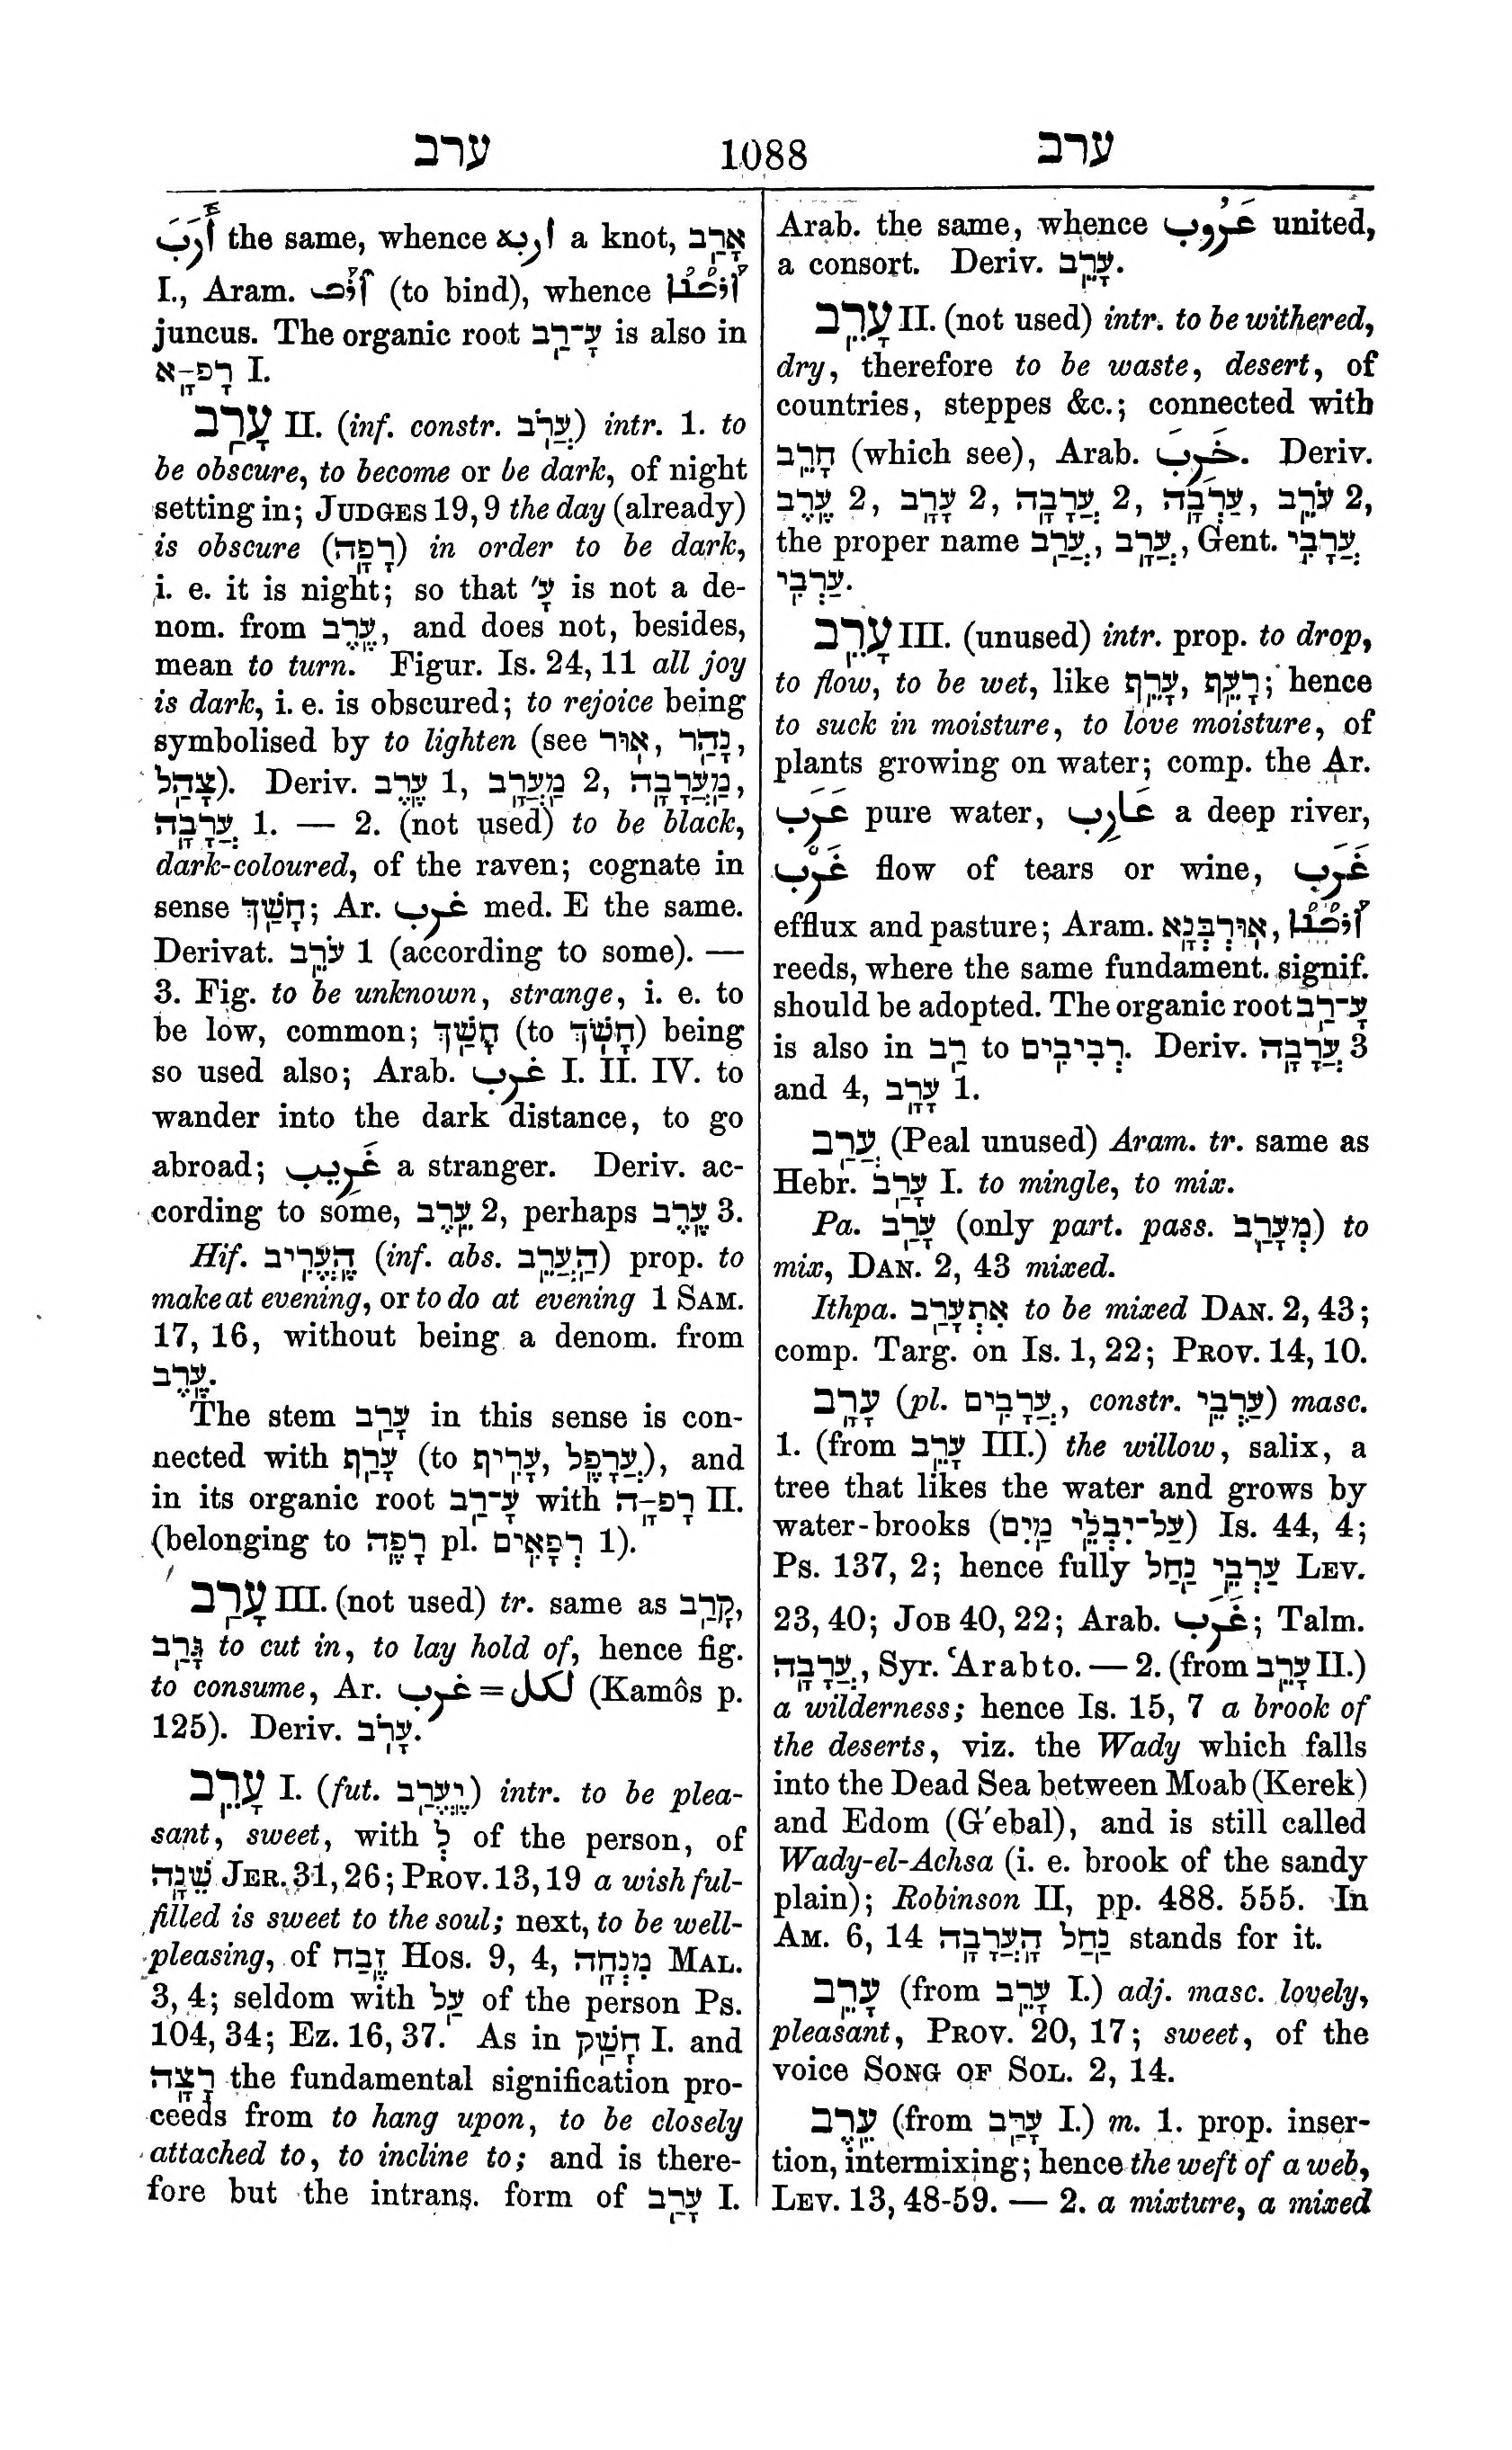 ערב 1088 ערב
أَرَّبَ the same, whence اربة a knot, אָרַב
I., Aram. (to bind), whence
juncus. The organic root עָ־רַב is also in
רָפָ־א I.
עָרַב II. (inf. constr. עֲרֹב) intr. 1. to
be obscure, to become or be dark, of night
setting in; JUDGES 19, 9 the day (already)
is obscure (רָפָה) in order to be dark,
i. e. it is night; so that עָ׳ is not a de-
nom. from עֶרֶב, and does not, besides,
mean to turn. Figur. Is. 24, 11 all joy
is dark, i. e. is obscured; to rejoice being
symbolised by to lighten (see אור, נָהַר,
צָהַל). Deriv. עֶרֶב 1, מַעֲרָב 2, מַעֲרָבָה,
עֲרָבָה 1. — 2. (not used) to be black,
dark-coloured, of the raven; cognate in
sense חָשַׁךְ; Ar. غرب med. E the same.
Derivat. עֹרֵב 1 (according to some). —
3. Fig. to be unknown, strange, i. e. to
be low, common; חָשַׁךְ (to חָשֹׁךְ) being
so used also; Arab. غرب I. II. IV. to
wander into the dark distance, to go
abroad; غَرِيب a stranger. Deriv. ac-
cording to some, עֵרֶב 2, perhaps עֶרֶב 3.
Hif. הֶעֱרִיב (inf. abs. הַעֲרַב) prop. to
make at evening, or to do at evening 1 SAM.
17, 16, without being a denom. from
עֶרֶב.
The stem עָרַב in this sense is con-
nected with עָרַף (to עָרִיף, עֲרָפֶל), and
in its organic root עָ־רַב with רָפָ־ה II.
(belonging to רָפֶה pl. רְפָאִים 1).
עָרַב III. (not used) tr. same as קָרַב,
גָּרַב to cut in, to lay hold of, hence fig.
to consume, Ar. غرب = لكل (Kamôs p.
125). Deriv. עָרֹב.
עָרֵב I. (fut. יֶעֱרַב) intr. to be plea-
sant, sweet, with לְ of the person, of
שֵׁנָה JER. 31, 26; PROV. 13, 19 a wish ful-
filled is sweet to the soul; next, to be well-
pleasing, of זֶבַח Hos. 9, 4, מִנְחָה MAL.
3, 4; seldom with עַל of the person Ps.
104, 34; Ez. 16, 37. As in חָשַׁק I. and
רָצָה the fundamental signification pro-
ceeds from to hang upon, to be closely
attached to, to incline to; and is there-
fore but the intrans. form of עָרַב I.
Arab. the same, whence عَرُوب united,
a consort. Deriv. עָרֵב.
עָרֵב II. (not used) intr. to be withered,
dry, therefore to be waste, desert, of
countries, steppes &c.; connected with
חָרֵב (which see), Arab. خَرِبَ. Deriv.
עֶרֶב 2, עָרָב 2, עֲרָבָה 2, עַרְבָה, עֹרֵב 2,
the proper name עֲרַב, עֲרָב, Gent. עֲרָבִי
עַרְבִי.
עָרֵב III. (unused) intr. prop. to drop,
to flow, to be wet, like עָרֵף, רָעֵף; hence
to suck in moisture, to love moisture, of
plants growing on water; comp. the Ar.
عَرَب pure water, عَارِب a deep river,
غَرْب flow of tears or wine, غَرَب
efflux and pasture; Aram. אוּרְבְּנָא,
reeds, where the same fundament. signif.
should be adopted. The organic root עָ־רַב
is also in רַב to רְבִיבִים. Deriv. עֲרָבָה 3
and 4, עָרָב 1.
עֲרַב (Peal unused) Aram. tr. same as
Hebr. עָרַב I. to mingle, to mix.
Pa. עָרַב (only part. pass. מְעָרַב) to
mix, DAN. 2, 43 mixed.
Ithpa. אִתְעָרַב to be mixed DAN. 2, 43;
comp. Targ. on Is. 1, 22; PROV. 14, 10.
עָרָב (pl. עֲרָבִים, constr. עַרְבֵי) masc.
1. (from עָרֵב III.) the willow, salix, a
tree that likes the water and grows by
water-brooks (עַל־יִבְלֵי מַיִם) Is. 44, 4;
Ps. 137, 2; hence fully עַרְבֵי נַחַל LEV.
23, 40; JOB 40, 22; Arab. غَرَب; Talm.
עֲרָבָה, Syr. ʿArabto. — 2. (from עָרֵב II.)
a wilderness; hence Is. 15, 7 a brook of
the deserts, viz. the Wady which falls
into the Dead Sea between Moab (Kerek)
and Edom (G'ebal), and is still called
Wady-el-Achsa (i. e. brook of the sandy
plain); Robinson II, pp. 488. 555. In
AM. 6, 14 נַחַל הָעֲרָבָה stands for it.
עָרֵב (from עָרֵב I.) adj. masc. lovely,
pleasant, PROV. 20, 17; sweet, of the
voice SONG OF SOL. 2, 14.
עֵרֶב (from עָרַב I.) m. 1. prop. inser-
tion, intermixing; hence the weft of a web,
LEV. 13, 48-59. — 2. a mixture, a mixed